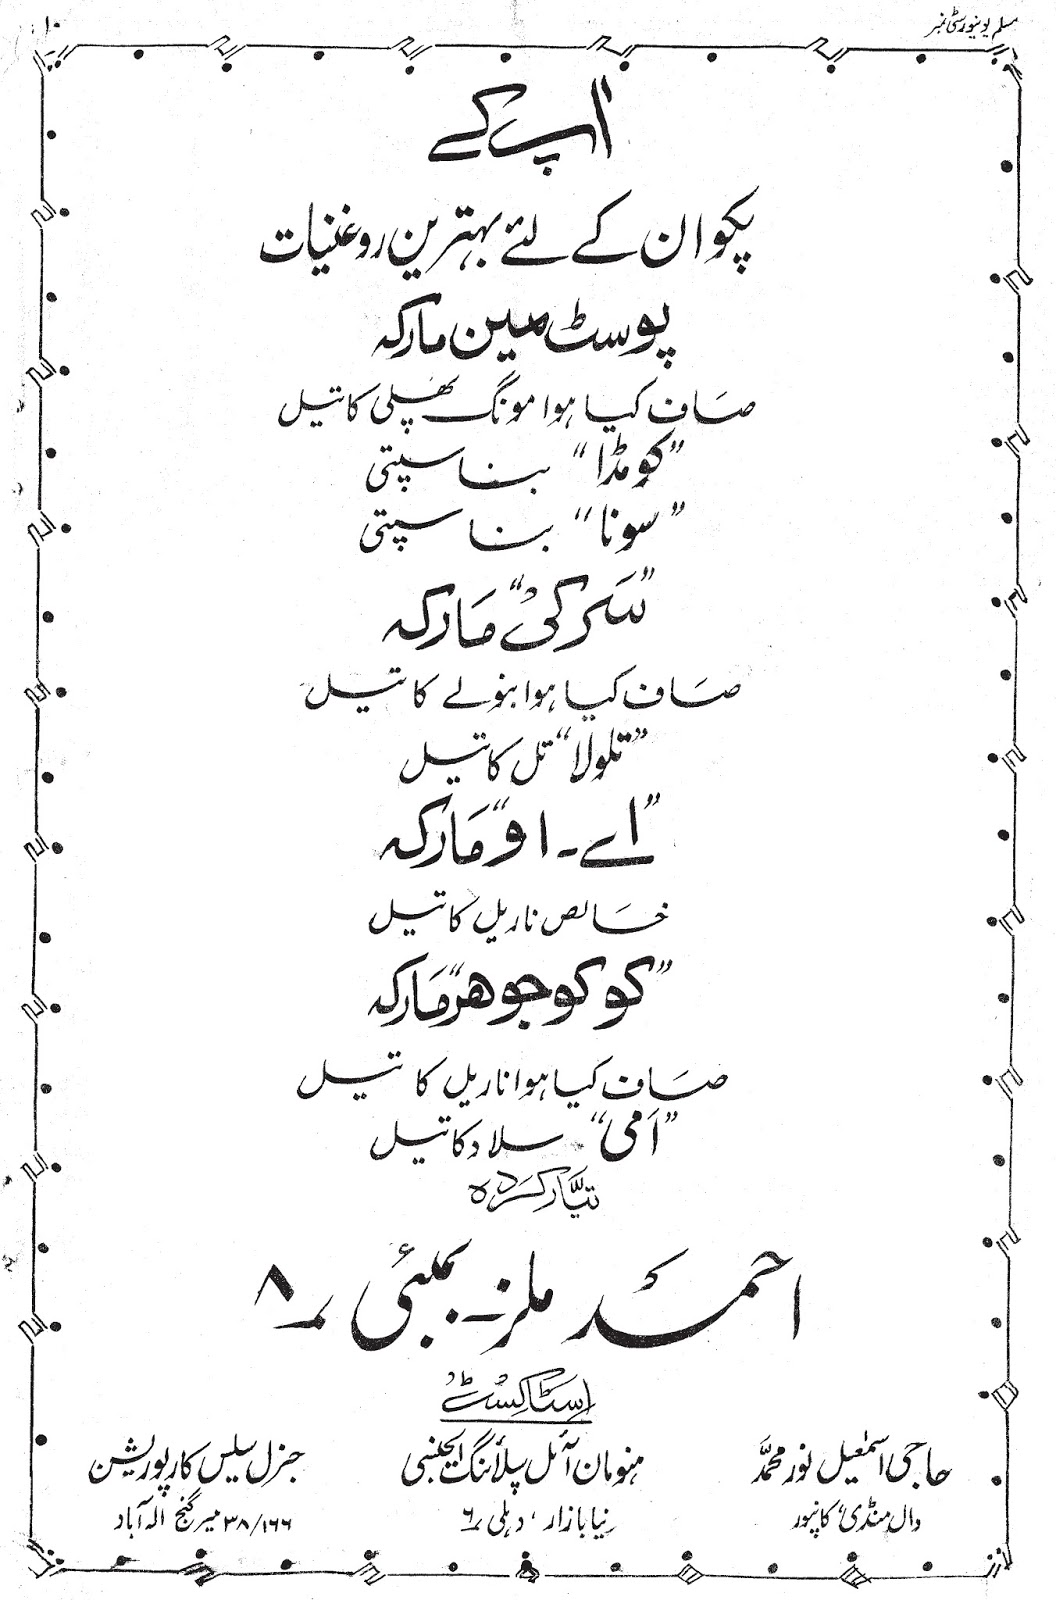 مسلم یونیورسٹی نمبر
۱۰
آپ کے
پکوان کے لئے بہترین روغنیات
پوسٹ مین مارکہ
صاف کیا ہوا مونگ پھلی کا تیل
”کومڈا“ بناسپتی
”سونا“ بناسپتی
”سرکی“ مارکہ
صاف کیا ہوا بنولے کا تیل
”تلولا“ تل کا تیل
”اے۔ او“ مارکہ
خالص ناریل کا تیل
”کوکو جوھر“ مارکہ
صاف کیا ہوا ناریل کا تیل
”امی“ سلاد کا تیل
تیار کردہ
احمد ملز۔ بمبئی ۸
اسٹاکسٹ
حاجی اسمٰعیل نور محمد
دال منڈی، کانپور
ہنومان آئل سپلائنگ ایجنسی
نیا بازار، دہلی ۶
جنرل سیلس کارپوریشن
۳۸/۱۶۶ میر گنج الہ آباد